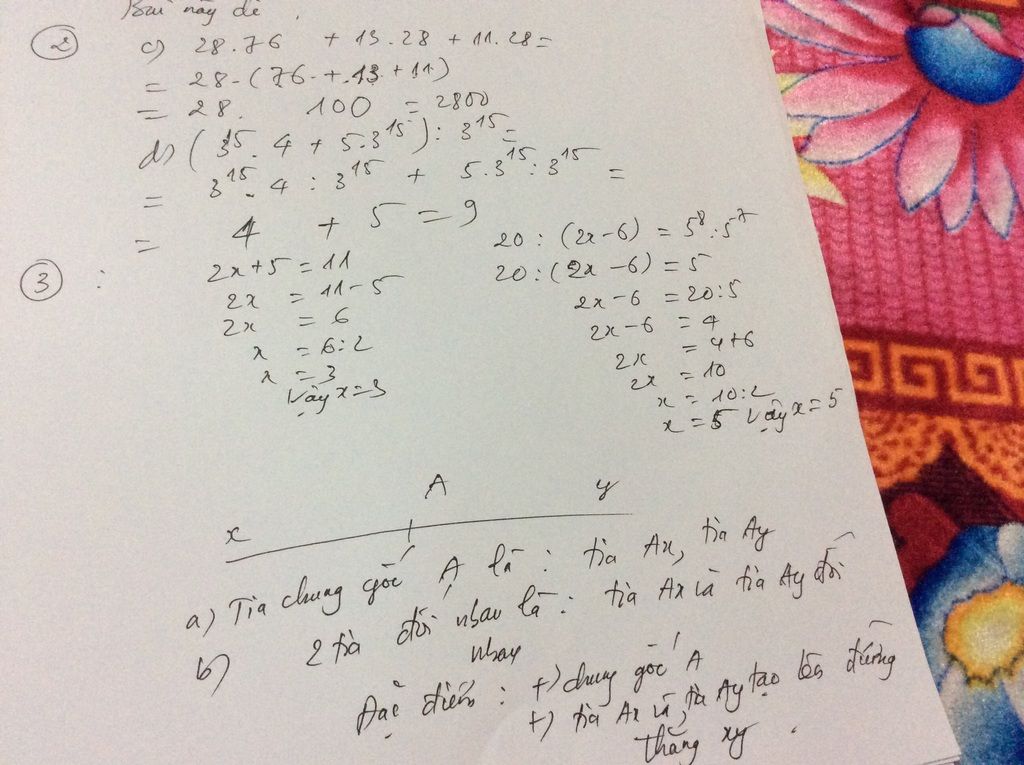 Bài này dễ
② c) 28.76 + 13.28 + 11.28 =
= 28.(76 + 13 + 11)
= 28. 100 = 2800
d) (3¹⁵. 4 + 5.3¹⁵) : 3¹⁵ =
= 3¹⁵. 4 : 3¹⁵ + 5.3¹⁵ : 3¹⁵ =
= 4 + 5 = 9
③ :
2x+5 = 11
2x = 11-5
2x = 6
x = 6:2
x = 3
Vậy x=3
20 : (2x-6) = 5⁸ : 5⁷
20 : (2x-6) = 5
2x-6 = 20:5
2x-6 = 4
2x = 4+6
2x = 10
x = 10:2
x = 5 Vậy x=5
x A y
a) Tia chung gốc A là : tia Ax, tia Ay
b) 2 tia đối nhau là : tia Ax và tia Ay đối
nhau
Đặc điểm : +) chung gốc A
+) tia Ax và tia Ay tạo lên đường
thẳng xy .